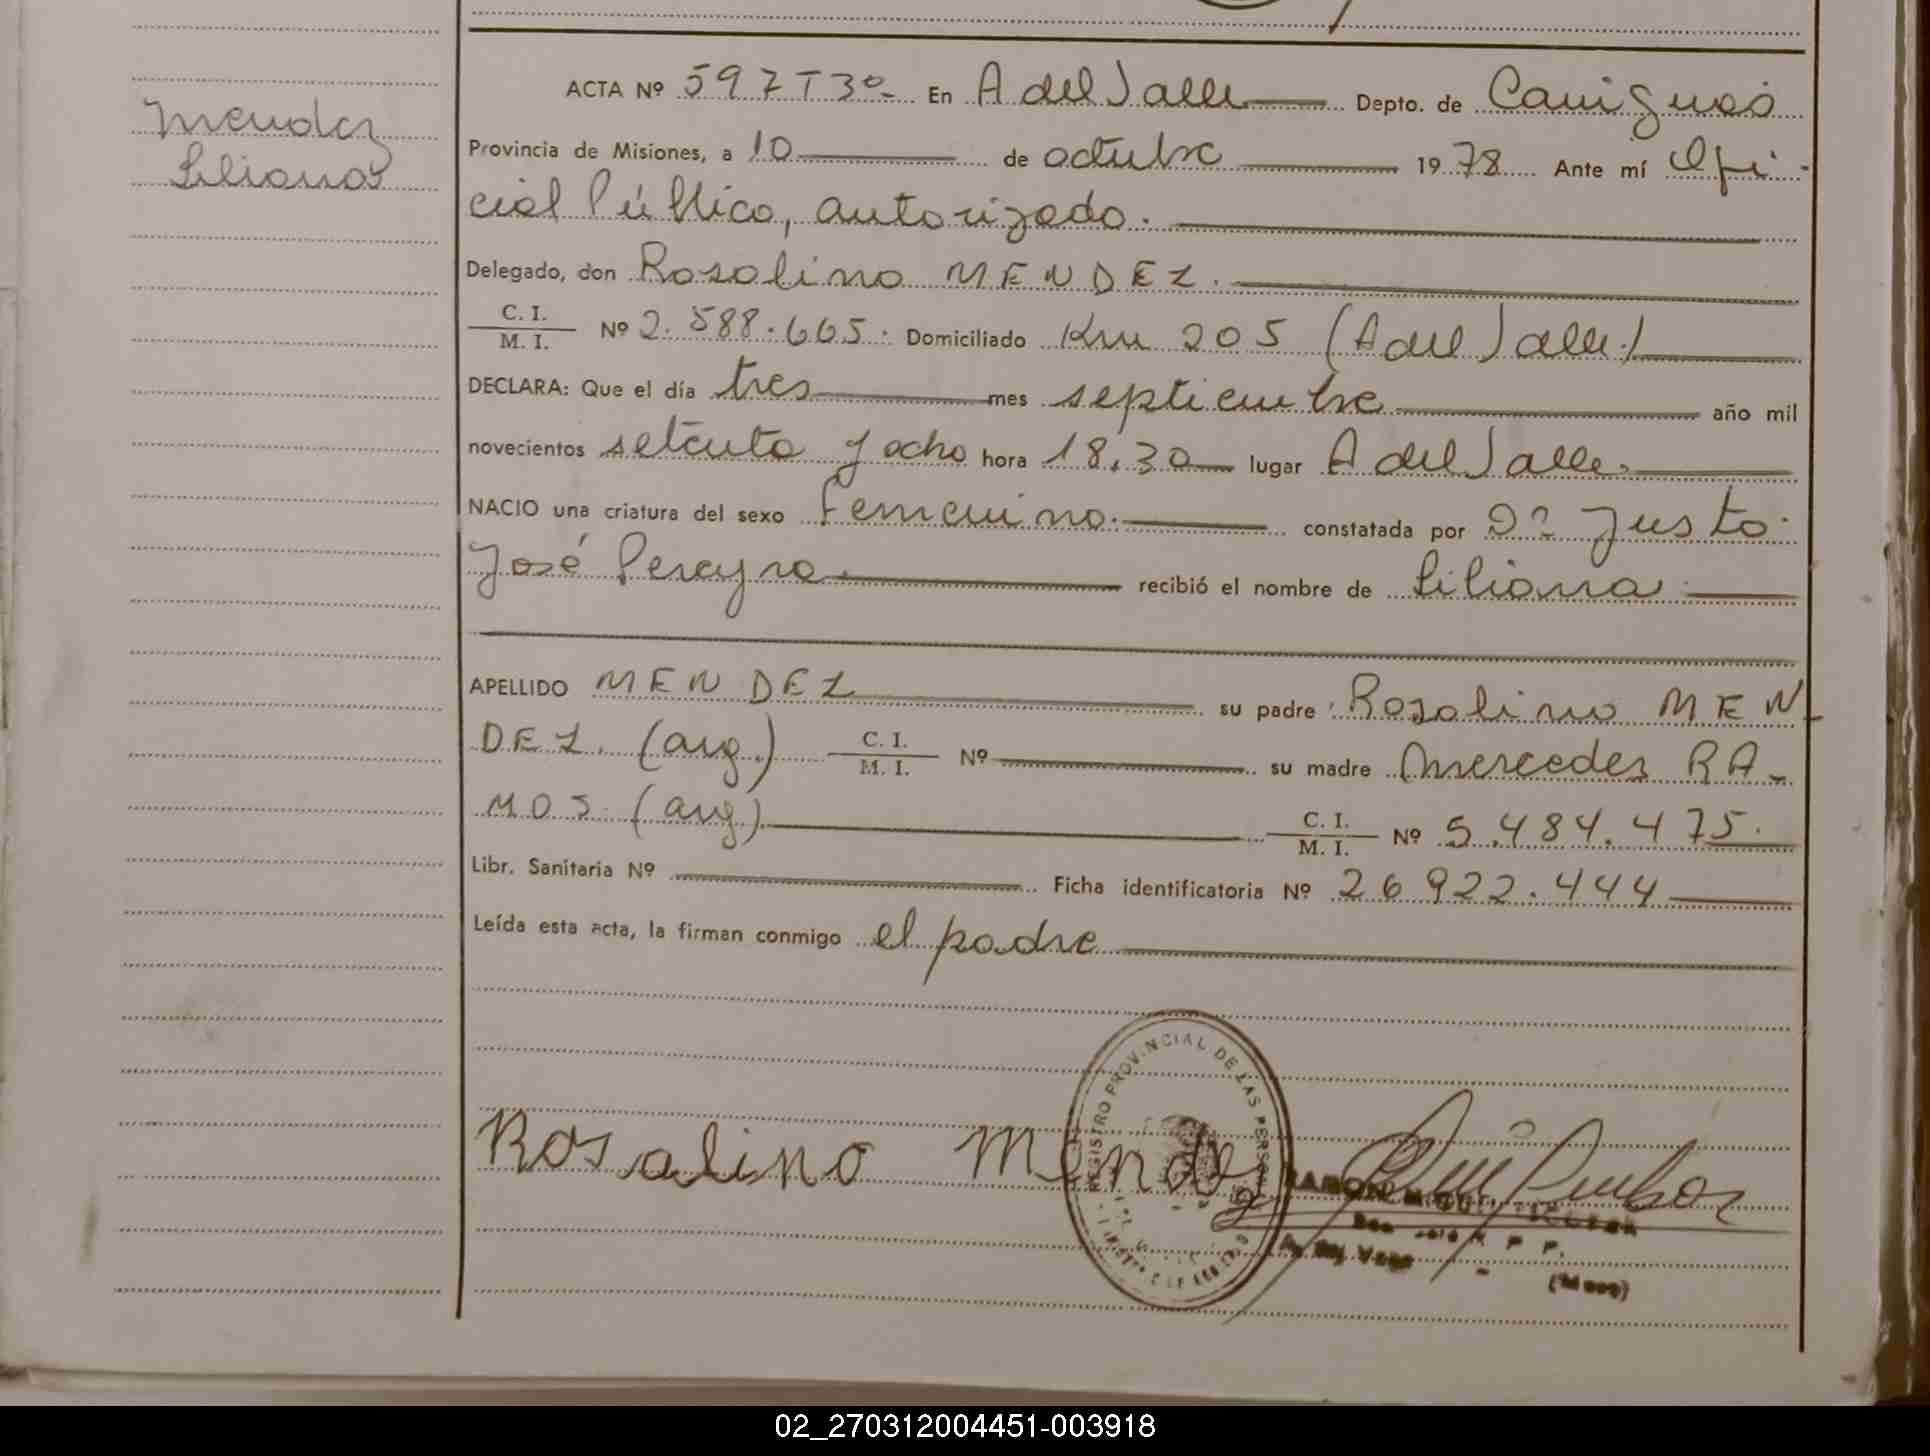 Mendez
Liliana
ACTA Nº 597 T 3º- En A del Valle Depto. de Cainguás
Provincia de Misiones, a 10 de octubre 1978 Ante mí Ofi-
cial Público, autorizado.
Delegado, don Rosolino MENDEZ.
C. I.
M. I. Nº 2.588.665. Domiciliado Km 205 (A del Valle.)
DECLARA: Que el día tres mes septiembre año mil
novecientos setenta y ocho hora 18,30 lugar A del Valle.
NACIO una criatura del sexo Femenino. constatada por Dn Justo
José Pereyra. recibió el nombre de Liliana
APELLIDO MENDEZ su padre Rosolino MEN-
DEZ. (arg.) C. I.
M. I. Nº su madre Mercedes RA-
MOS. (arg) C. I.
M. I. Nº 5.484.475.
Libr. Sanitaria Nº Ficha identificatoria Nº 26.922.444
Leída esta acta, la firman conmigo el padre
REGISTRO PROVINCIAL DE LAS PERSONAS
Rosalino Mendez
RAMON
A. del Valle (Mnes)
02_270312004451-003918